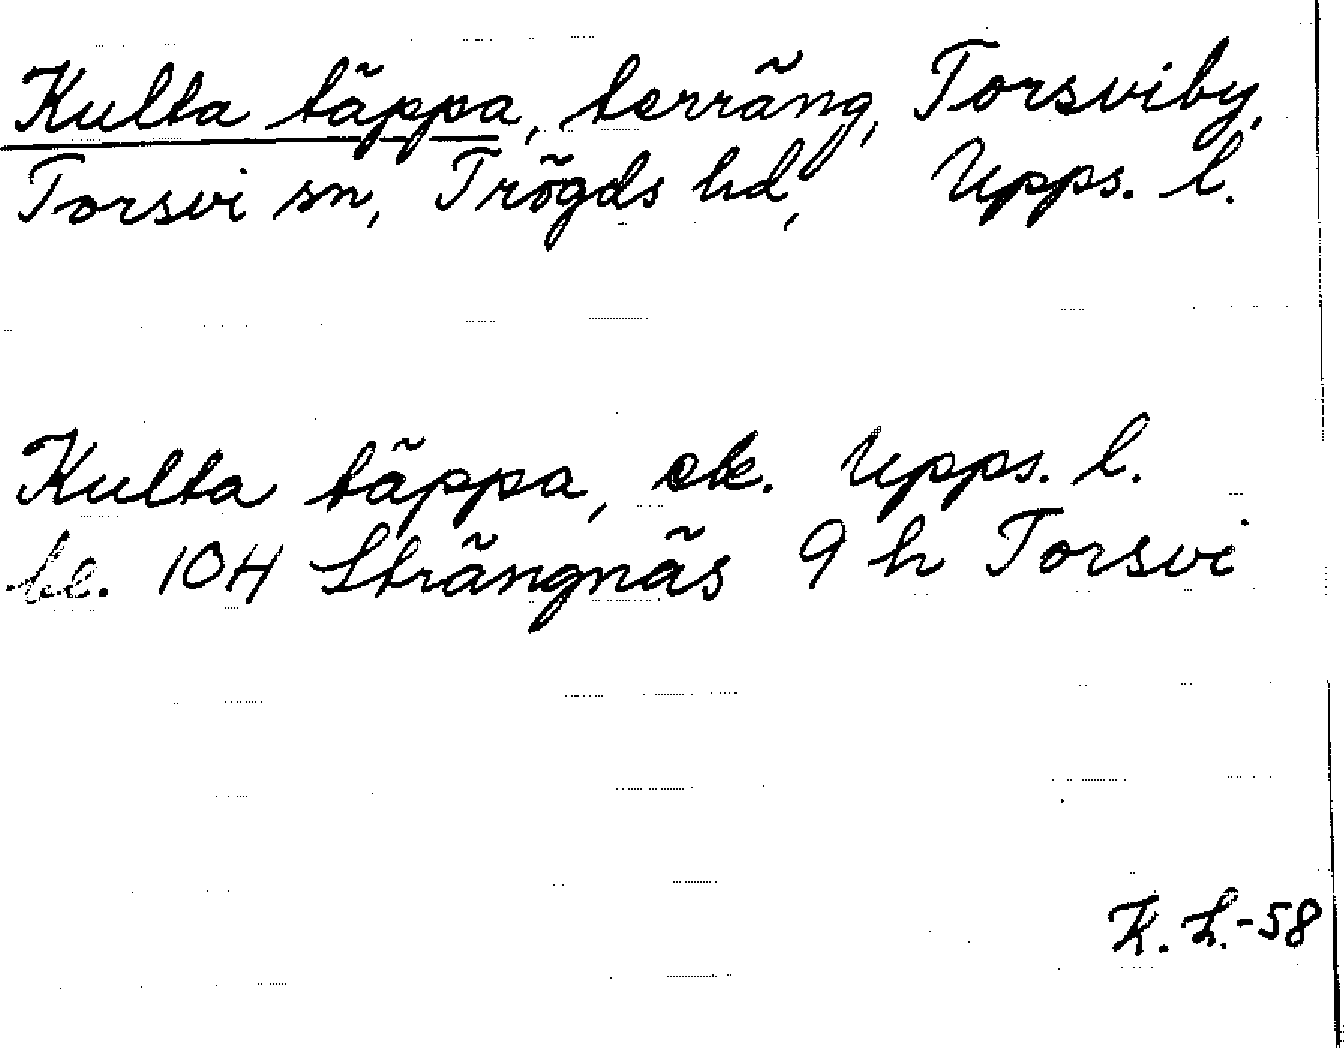 Kulla täppa, terräng, Torsviby,
Torsvi sn, Trögds hd, Upps. l.
Kulla täppa, ek. Upps. l.
bl. 10H Strängnäs 9 h Torsvi
K. L.-58